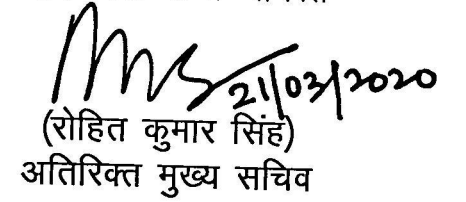 21/03/2020
(रोहित कुमार सिंह)
अतिरिक्त मुख्य सचिव